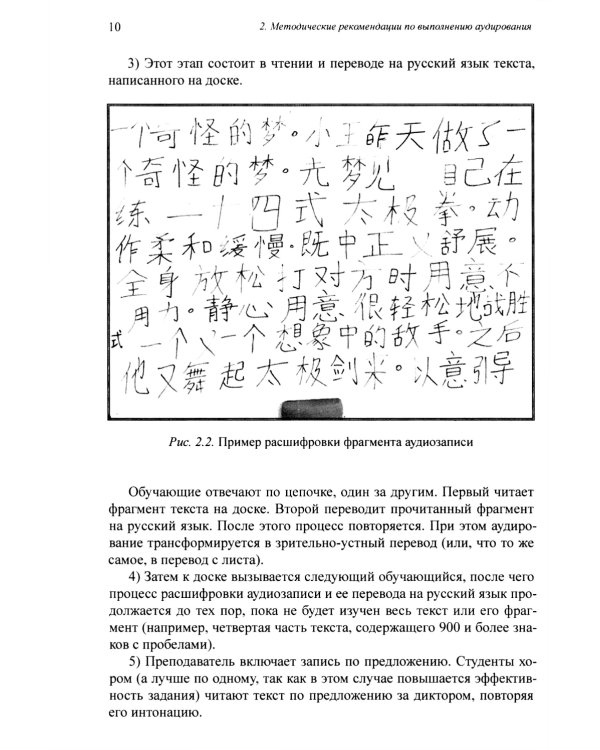 10
2. Методические рекомендации по выполнению аудирования
3) Этот этап состоит в чтении и переводе на русский язык текста,
написанного на доске.
一个奇怪的梦。小王昨天做了一
个奇怪的梦。先梦见 自己在
练 二十四式 太极拳。动
作柔和缓慢。既中正又舒展。
全身放松打对方时用意不
用力。静心用意很轻松地战胜
式 一个又一个想象中的敌手。之后
他又舞起太极剑来。以意引导
Рис. 2.2. Пример расшифровки фрагмента аудиозаписи
Обучающие отвечают по цепочке, один за другим. Первый читает
фрагмент текста на доске. Второй переводит прочитанный фрагмент
на русский язык. После этого процесс повторяется. При этом аудиро-
вание трансформируется в зрительно-устный перевод (или, что то же
самое, в перевод с листа).
4) Затем к доске вызывается следующий обучающийся, после чего
процесс расшифровки аудиозаписи и ее перевода на русский язык про-
должается до тех пор, пока не будет изучен весь текст или его фраг-
мент (например, четвертая часть текста, содержащего 900 и более зна-
ков с пробелами).
5) Преподаватель включает запись по предложению. Студенты хо-
ром (а лучше по одному, так как в этом случае повышается эффектив-
ность задания) читают текст по предложению за диктором, повторяя
его интонацию.